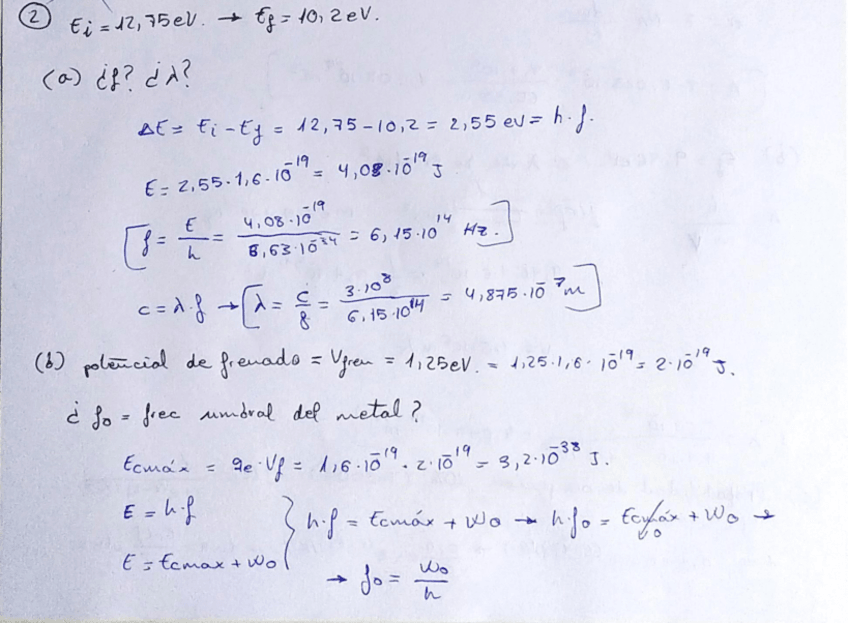 ② Ei = 12,75 eV. → Ef = 10,2 eV.
(a) ¿f? ¿λ?
ΔE = Ei - Ef = 12,75 - 10,2 = 2,55 eV = h·f.
E = 2,55·1,6·10^-19 = 4,08·10^-19 J
[f = E/h = 4,08·10^-19 / 6,63·10^-34 = 6,15·10^14 Hz.]
c = λ·f → [λ = c/f = 3·10^8 / 6,15·10^14 = 4,875·10^-7 m]
(b) potencial de frenado = Vfren = 1,25 eV. = 1,25·1,6·10^-19 = 2·10^-19 J.
¿ fo = frec umbral del metal?
Ecmáx = qe·Vf = 1,6·10^-19 · 2·10^-19 = 3,2·10^-38 J.
E = h·f
E = Ecmax + Wo } h·f = Ecmáx + Wo → h·fo = Ecmáx 0 + Wo →
→ fo = Wo/h